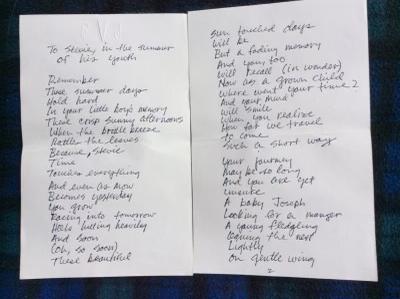 To Stevie, in the summer
of his youth
Remember
These summer days
Hold hard
In your little boy's memory
These crisp sunny afternoons
When the breeze
Rattles the leaves
Because, Stevie
Time
Touches everything
And even as now
Becomes yesterday
You grow
Racing into tomorrow
Heels hitting heavily
And soon
(Oh, so soon)
These beautiful
sun touched days
will be
But a fading memory
And you, too
will recall (in wonder)
Now as a grown child
Where went your time?
And your mind
will smile
When you realize
How far we travel
to come
Such a short way
Your journey
May be so long
And you are yet
A baby Joseph
Looking for a manger
A young fledgling
the nest
Lightly
On gentle wing
2